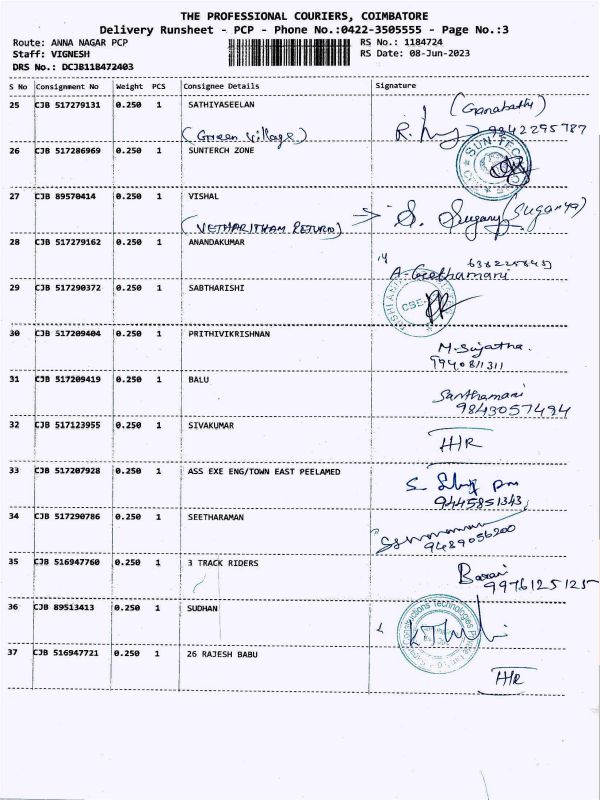 THE PROFESSIONAL COURIERS, COIMBATORE
Delivery Runsheet - PCP - Phone No.:0422-3505555 - Page No.:3
Route: ANNA NAGAR PCP RS No.: 1184724
Staff: VIGNESH RS Date: 08-Jun-2023
DRS No.: DCJB118472403
S No Consignment No Weight PCS Consignee Details Signature
25 CJB 517279131 0.250 1 SATHIYASEELAN (Ganabathy)
(Green Village) 9342295787
26 CJB 517286969 0.250 1 SUNTERCH ZONE
SUN-TEC
27 CJB 89570414 0.250 1 VISHAL S. Sugany (Suganya)
(VETHARITHAM RETURN)
28 CJB 517279162 0.250 1 ANANDAKUMAR
A. Geethamani
29 CJB 517290372 0.250 1 SABTHARISHI
CBE
30 CJB 517209404 0.250 1 PRITHIVIKRISHNAN M. Sujatha.
9940811311
31 CJB 517209419 0.250 1 BALU Santhamani
9843057494
32 CJB 517123955 0.250 1 SIVAKUMAR
H/R
33 CJB 517207928 0.250 1 ASS EXE ENG/TOWN EAST PEELAMED
9445851343
34 CJB 517290786 0.250 1 SEETHARAMAN
9489056200
35 CJB 516947760 0.250 1 3 TRACK RIDERS
9976125125
36 CJB 89513413 0.250 1 SUDHAN
Constructions Technologies
37 CJB 516947721 0.250 1 26 RAJESH BABU
H/R